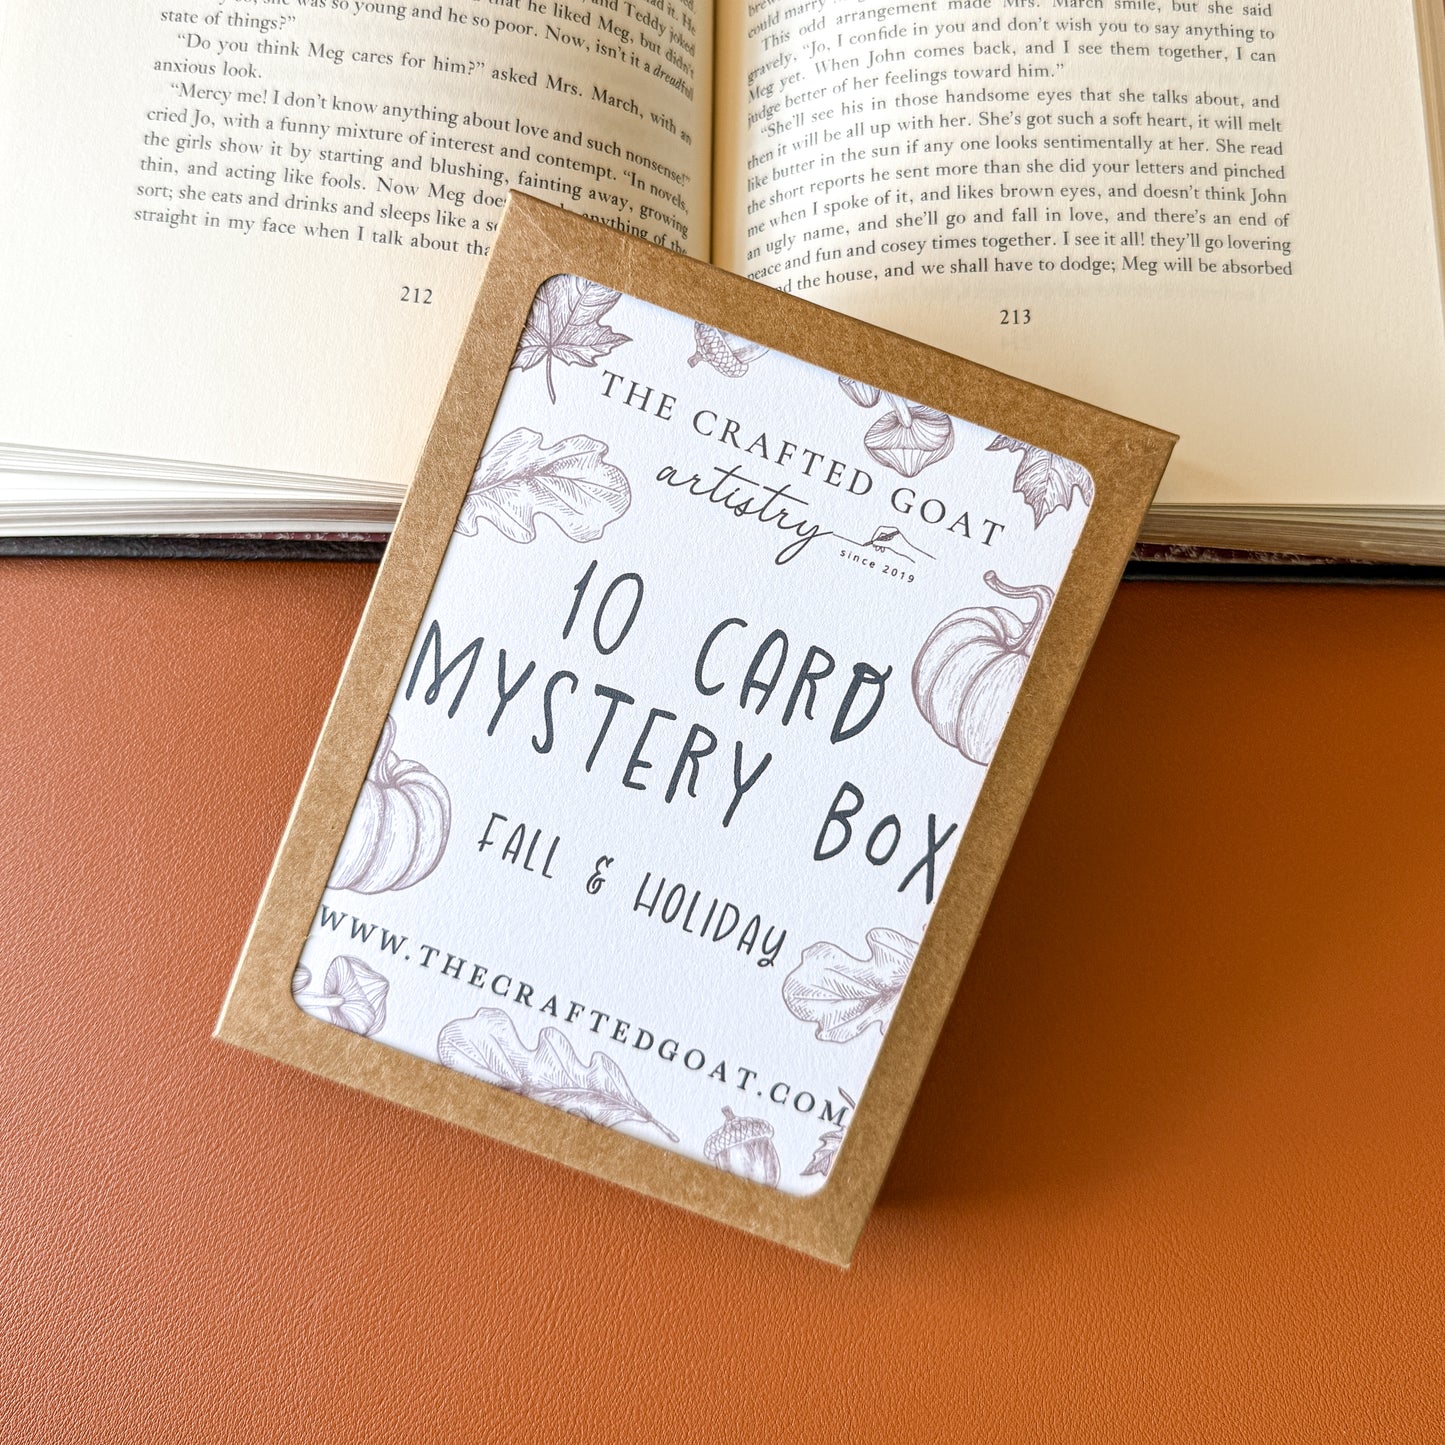 she was so young and he so poor. Now, isn't it a dreadful
state of things?"
"Do you think Meg cares for him?" asked Mrs. March, with an
anxious look.
"Mercy me! I don't know anything about love and such nonsense!"
cried Jo, with a funny mixture of interest and contempt. "In novels,
the girls show it by starting and blushing, fainting away, growing
thin, and acting like fools. Now Meg anything of the
sort; she eats and drinks and sleeps like a
straight in my face when I talk about
212
could marry
This odd arrangement made Mrs. March smile, but she said
gravely, "Jo, I confide in you and don't wish you to say anything to
Meg yet. When John comes back, and I see them together, I can
judge better of her feelings toward him."
"She'll see his in those handsome eyes that she talks about, and
then it will be all up with her. She's got such a soft heart, it will melt
like butter in the sun if any one looks sentimentally at her. She read
the short reports he sent more than she did your letters and pinched
me when I spoke of it, and likes brown eyes, and doesn't think John
an ugly name, and she'll go and fall in love, and there's an end of
peace and fun and cosey times together. I see it all! they'll go lovering
the house, and we shall have to dodge; Meg will be absorbed
213
THE CRAFTED GOAT
artistry
since 2019
10 CARD
MYSTERY BOX
FALL & HOLIDAY
WWW.THECRAFTEDGOAT.COM